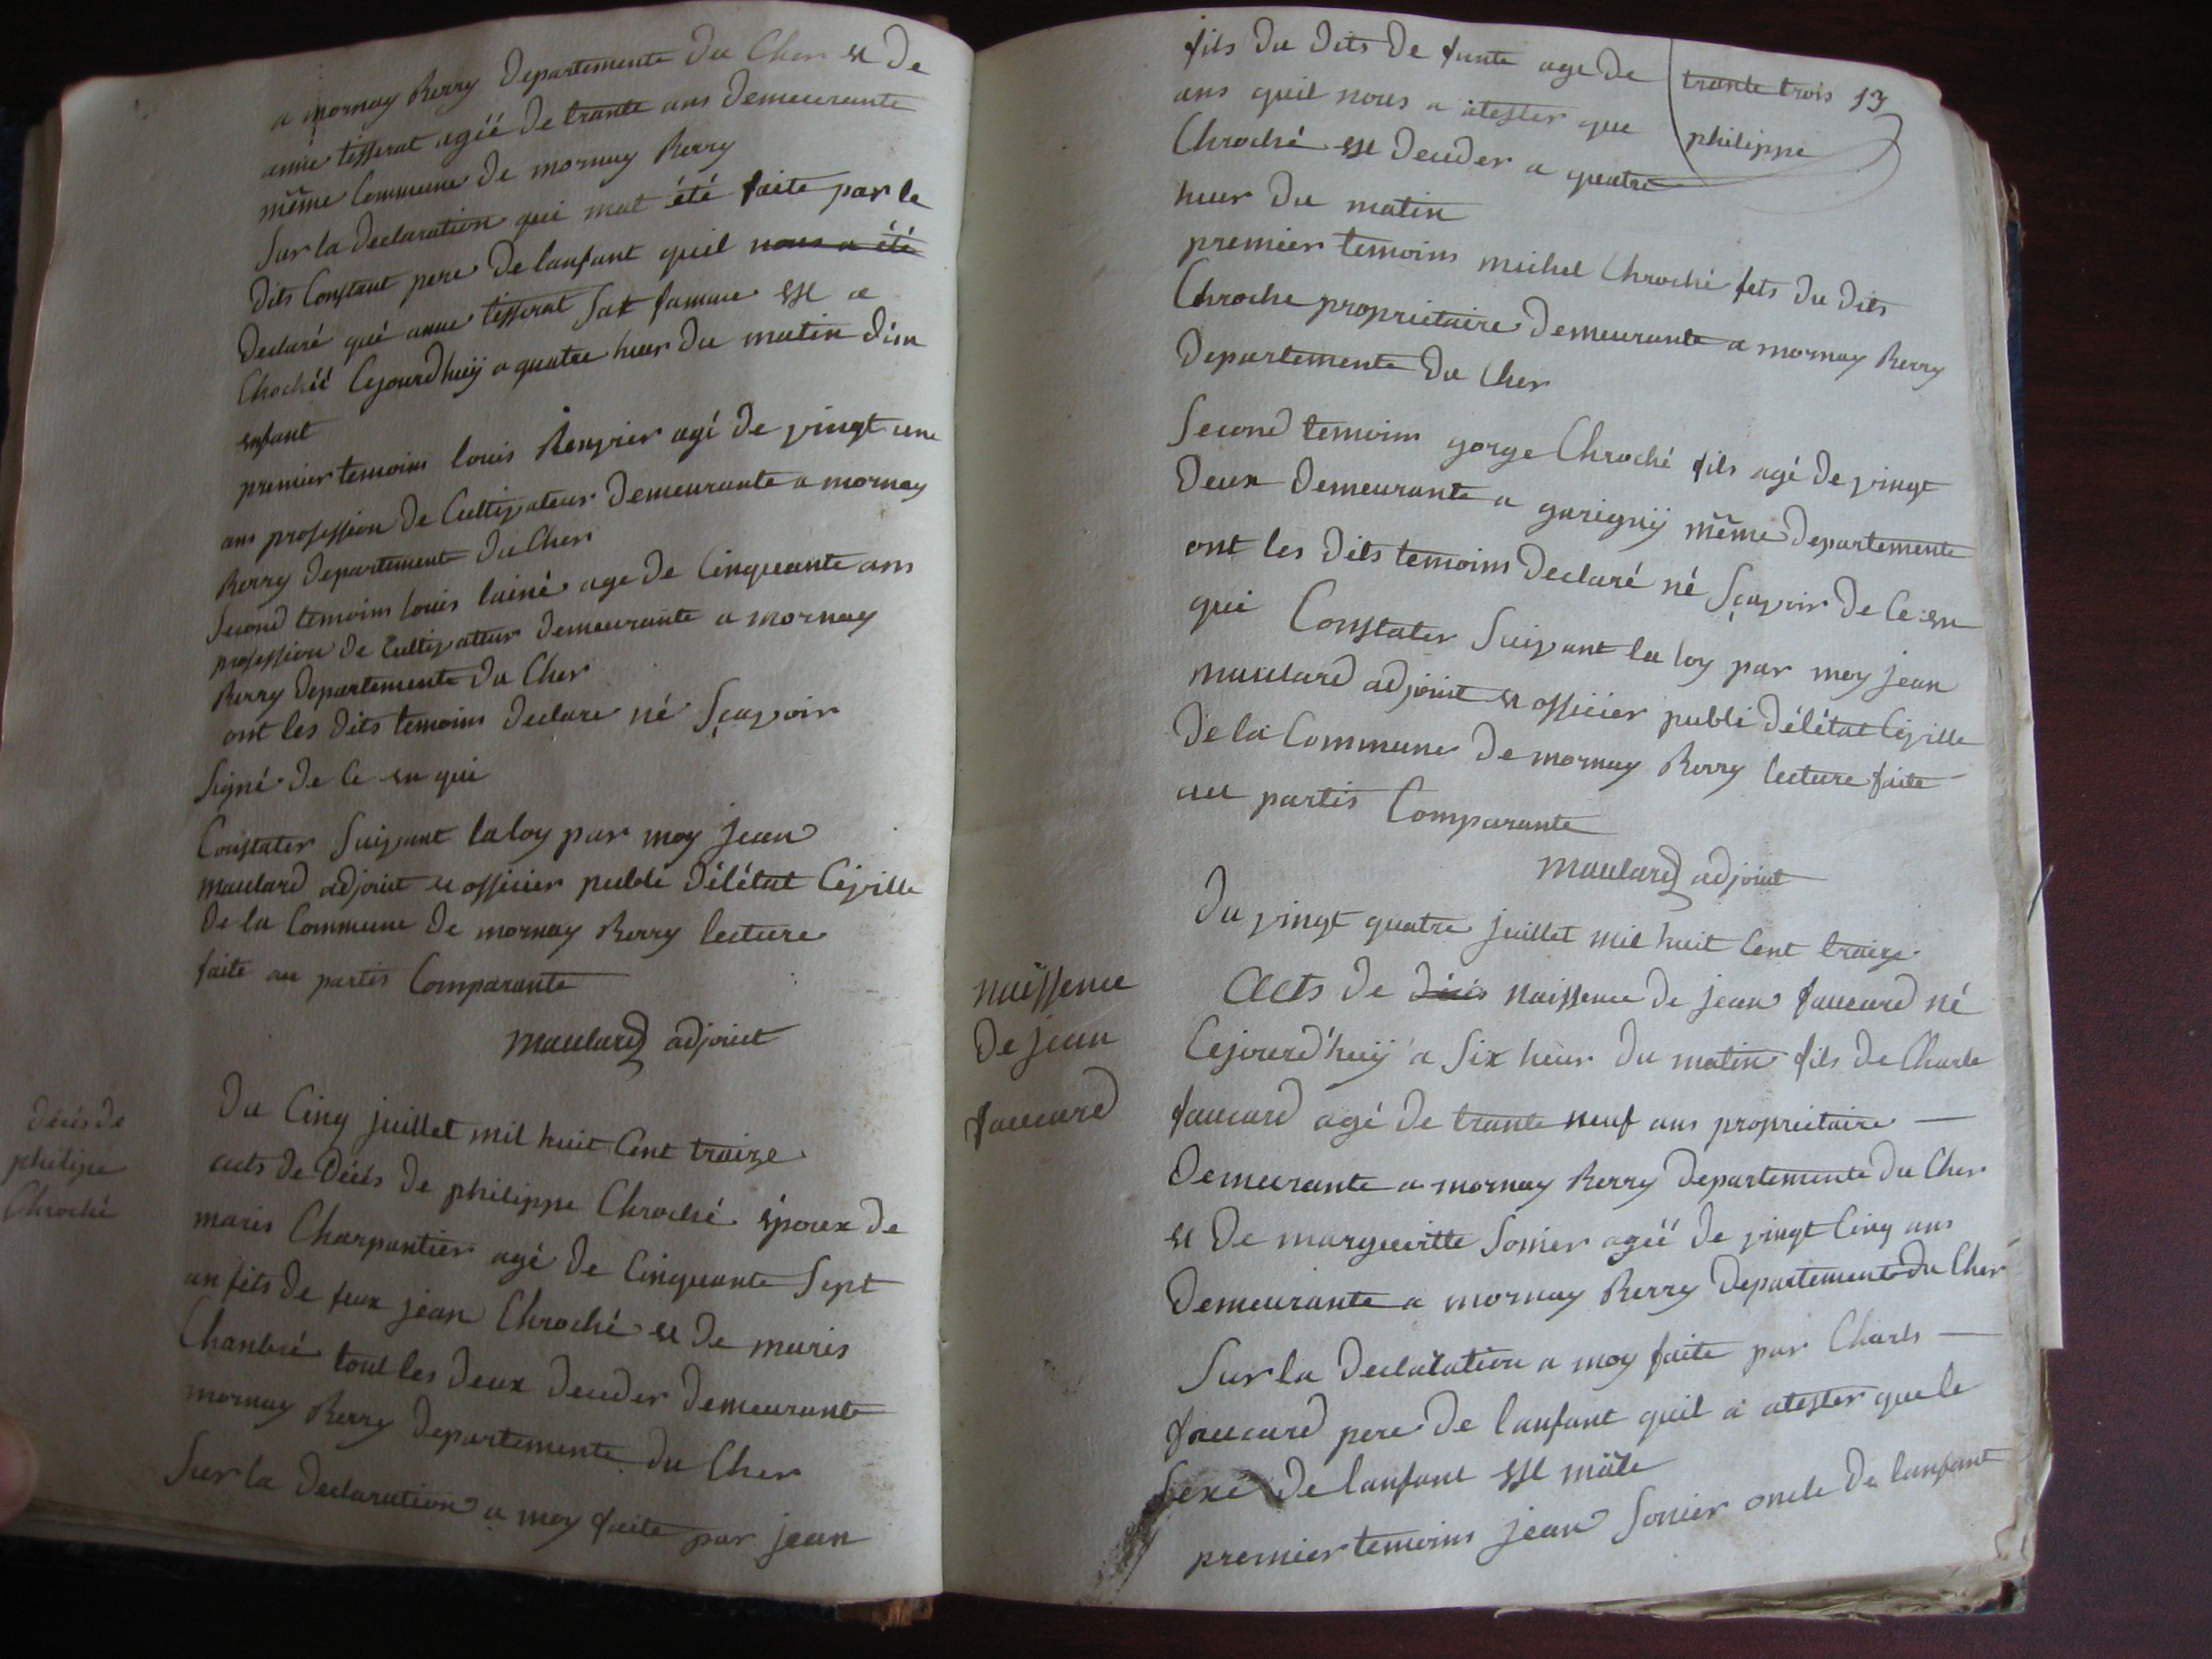 a mornay Berry Departemente Du Cher et De
anne tisserat agéé De trante ans Demeurante
même Commune De mornay Berry
Sur la Declaration qui mat été faite par le
Dits Constant pere De lanfant quil nous a été
Declaré qué anne tisserat Sat famme est a
Chochéé Cejourdhuÿ a quatre heur Du matin Dun
enfant
premier temoins louis agé De vingt une
ans profession De Cultivateur Demeurante a mornay
Berry Departemente Du Cher
Second temoins louis lainé age De Cinquante ans
profession De Cultivateur Demeurante a mornay
Berry Departemente Du Cher
ont les Dits temoins Declare né Sçavoir
Signé De Ce en qui
Constater Suivant la loy par moy jean
maulard adjoint et officier publi Délétat Civille
De la Commune De mornay Berry lecture
faite au partis Comparante
maulard adjoint
Décés De
philipe
Chroché
Du Cinq juillet mil huit Cent traize
acts de Décés De philippe Chroché époux De
maris Charpantier agé De Cinquante Sept
an fils De feux jean Chroché et De maris
tout les Deux Deceder Demeurante
mornay Berry Departemente Du Cher
Sur la Declaration a moy faite par jean
fils Du Dits De funte age De trante trois 13
ans quil nous a atester que philippe
Chroché est Deceder a quatre
heur Du matin
premier temoins michel Chroché fils Du Dits
Chroche proprietaire Demeurante a mornay Berry
Departemente Du Cher
Second temoins gorge Chroché fils agé De vingt
Deux Demeurante a garignÿ même Departemente
ont les Dits temoins Declaré né Sçavoir De Ce en
qui Constater Suivant la loy par moy jean
maulard adjoint et officier publi Délétat Civille
De la Commune De mornay Berry lecture faite
au partis Comparante
maulard adjoint
Du vingt quatre juillet mil huit Cent traize
naissence
De jean
faucard
Acts De décés naissence De jean faucard né
Cejourd'huÿ a Six heur Du matin fils De Charle
faucard agé De trante neuf ans proprietaire
Demeurante a mornay Berry Departemente Du Cher
et De margueritte Sonier agéé De vingt Cinq ans
Demeurante a mornay Berry Departemente Du Cher
Sur la Declaration a moy faite par Charls
faucard pere De lanfant quil a atester que le
Sexe De lanfant est mâle
premier temoins jean Sonier oncle De lanfant